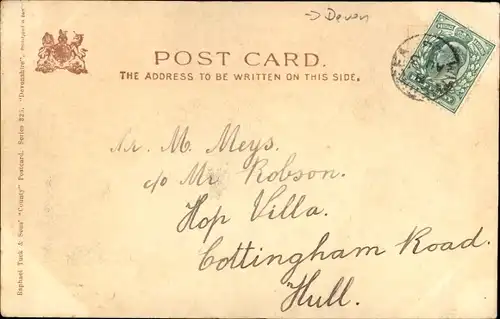 → Devon
POST CARD.
THE ADDRESS TO BE WRITTEN ON THIS SIDE.
Mr. M. Meys.
c/o Mr Robson.
Hop Villa.
Cottingham Road.
Hull.
Raphael Tuck & Sons' "County" Postcard. Series 223. "Devonshire".